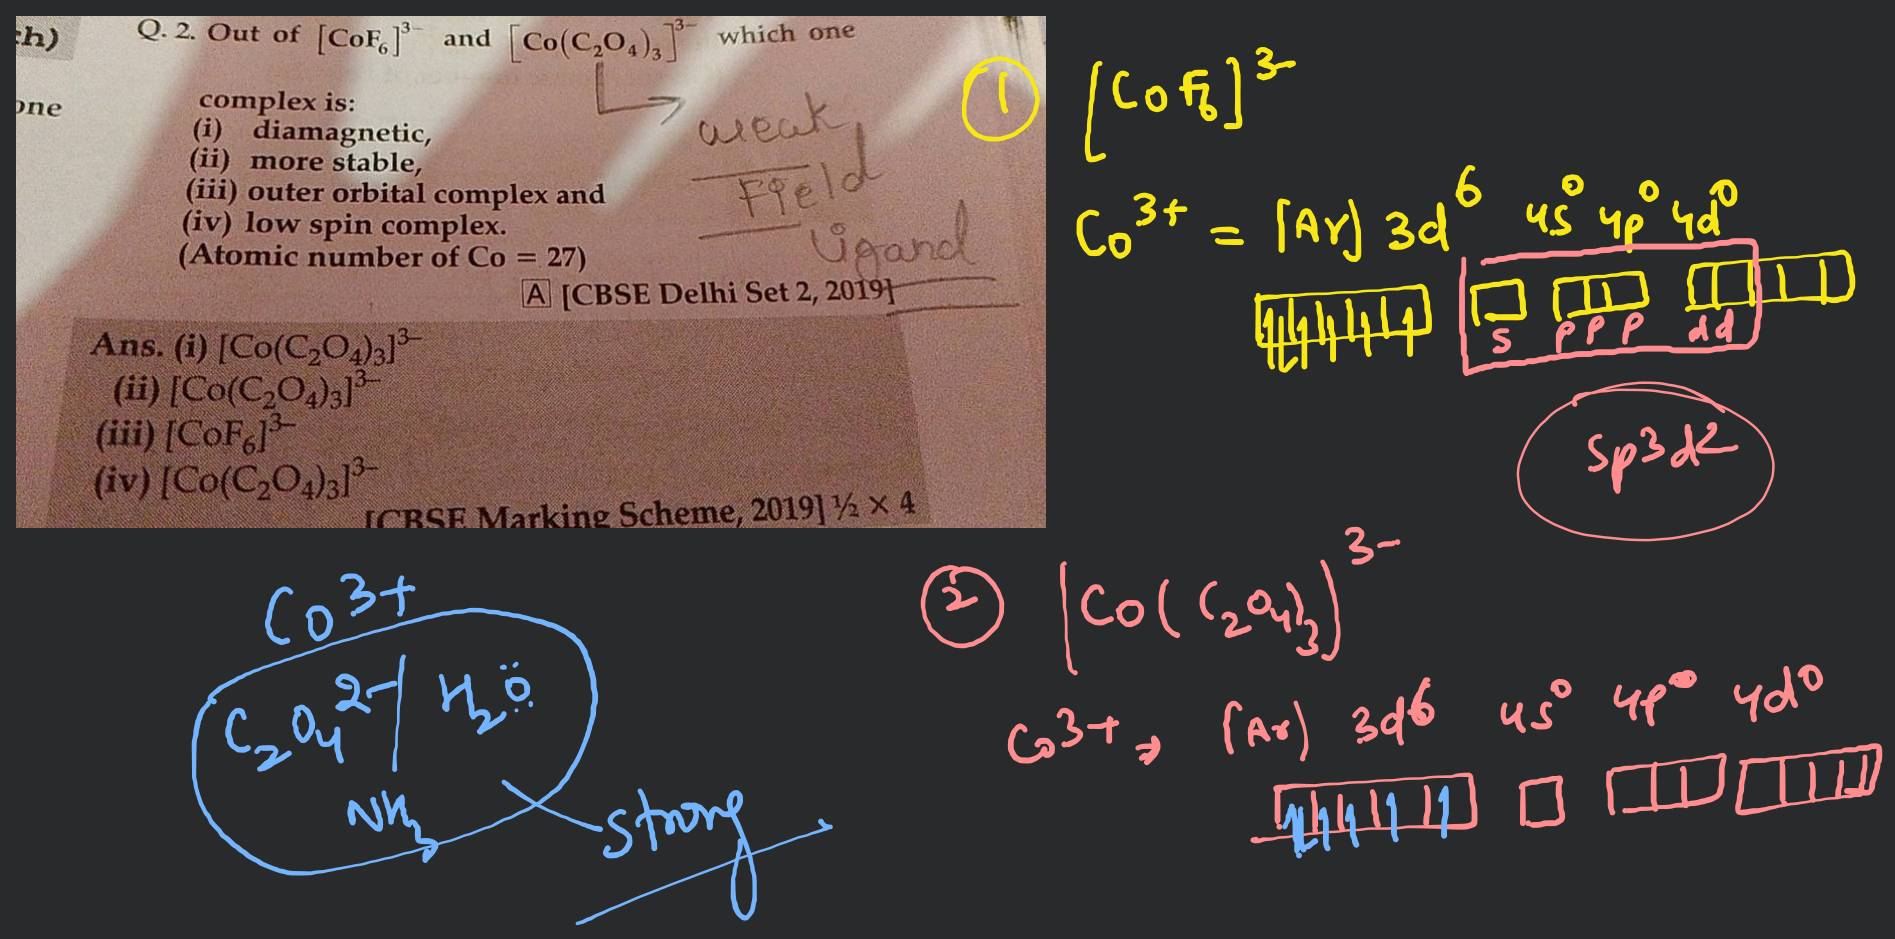 :h)
one
Q. 2. Out of [CoF₆]³⁻ and [Co(C₂O₄)₃]³⁻ which one
complex is:
(i) diamagnetic,
(ii) more stable,
(iii) outer orbital complex and
(iv) low spin complex.
(Atomic number of Co = 27)
A [CBSE Delhi Set 2, 2019]
weak
Field
ligand
Ans. (i) [Co(C₂O₄)₃]³⁻
(ii) [Co(C₂O₄)₃]³⁻
(iii) [CoF₆]³⁻
(iv) [Co(C₂O₄)₃]³⁻
[CBSE Marking Scheme, 2019] ½ × 4
1 [CoF₆]³⁻
Co³⁺ = [Ar] 3d⁶ 4s⁰ 4p⁰ 4d⁰
s p p p d d
sp3d2
2 [Co(C₂O₄)₃]³⁻
Co³⁺ → [Ar] 3d⁶ 4s⁰ 4p⁰ 4d⁰
Co³⁺
C₂O₄²⁻ | H₂O
NH₃
strong